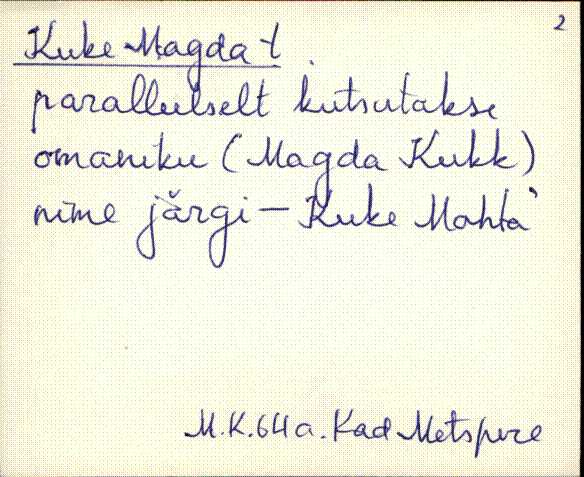 2
Kuke Magda-t
parallelselt kutsutakse
omaniku (Magda Kukk)
nime järgi – Kuke Mahta'
M.K. 64 a. Kad Metspere